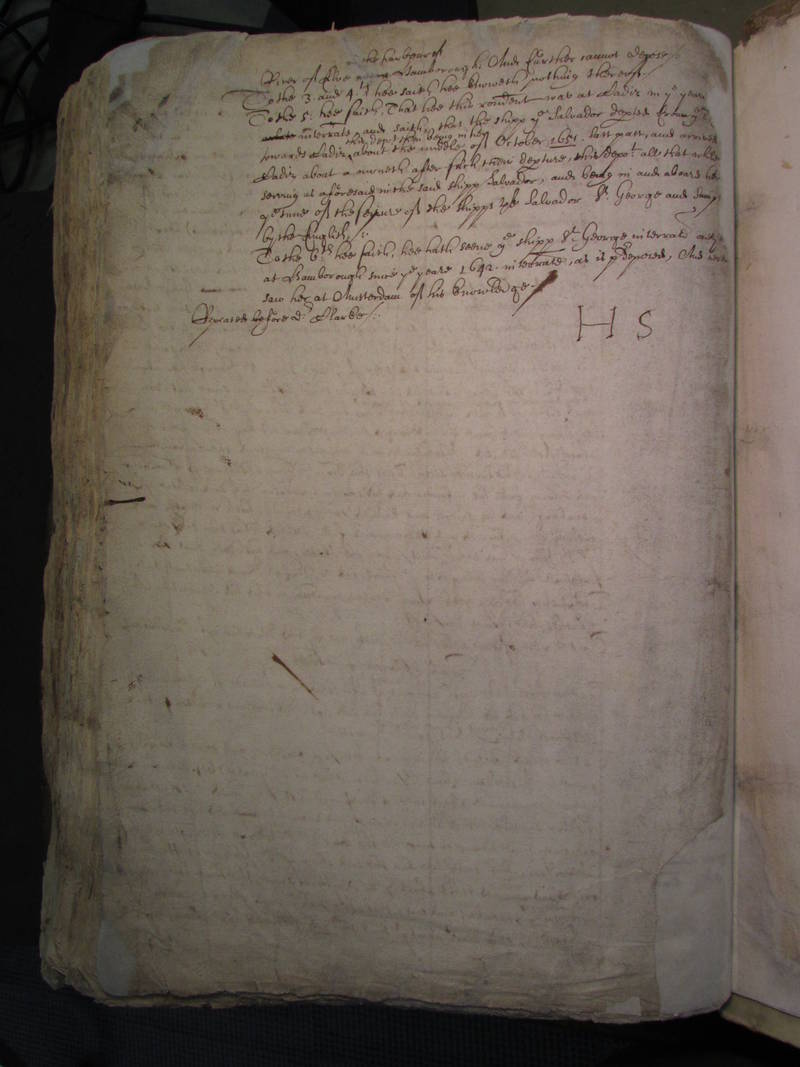 the harbour of
River of Elve Hamborough. And further cannot depose
To the 3. and 4th hee saith hee knoweth nothing thereof.
To the 5. hee saith, That hee this rondent was at Cadiz in ye yeare
interrate, and saith, that the shipp ye Salvador depted from
this depot then being in her
towards Cadiz about the middle of October 1651. last past, and arrived
Cadiz about a moneth after such their depture, this depot all that
serving as aforesaid in the said shipp Salvador, and being in and aboard her
ye tyme of the seizure of the shipps the Salvador St. George and
by the English.
To the 6th hee saith, hee hath seene ye shipp St. George interrate
at Hamborough since ye yeare 1642. interrate, as is pdeposed, And
saw her at Amsterdam of his knowledge.
Repeated before Dr Clarke.
H S